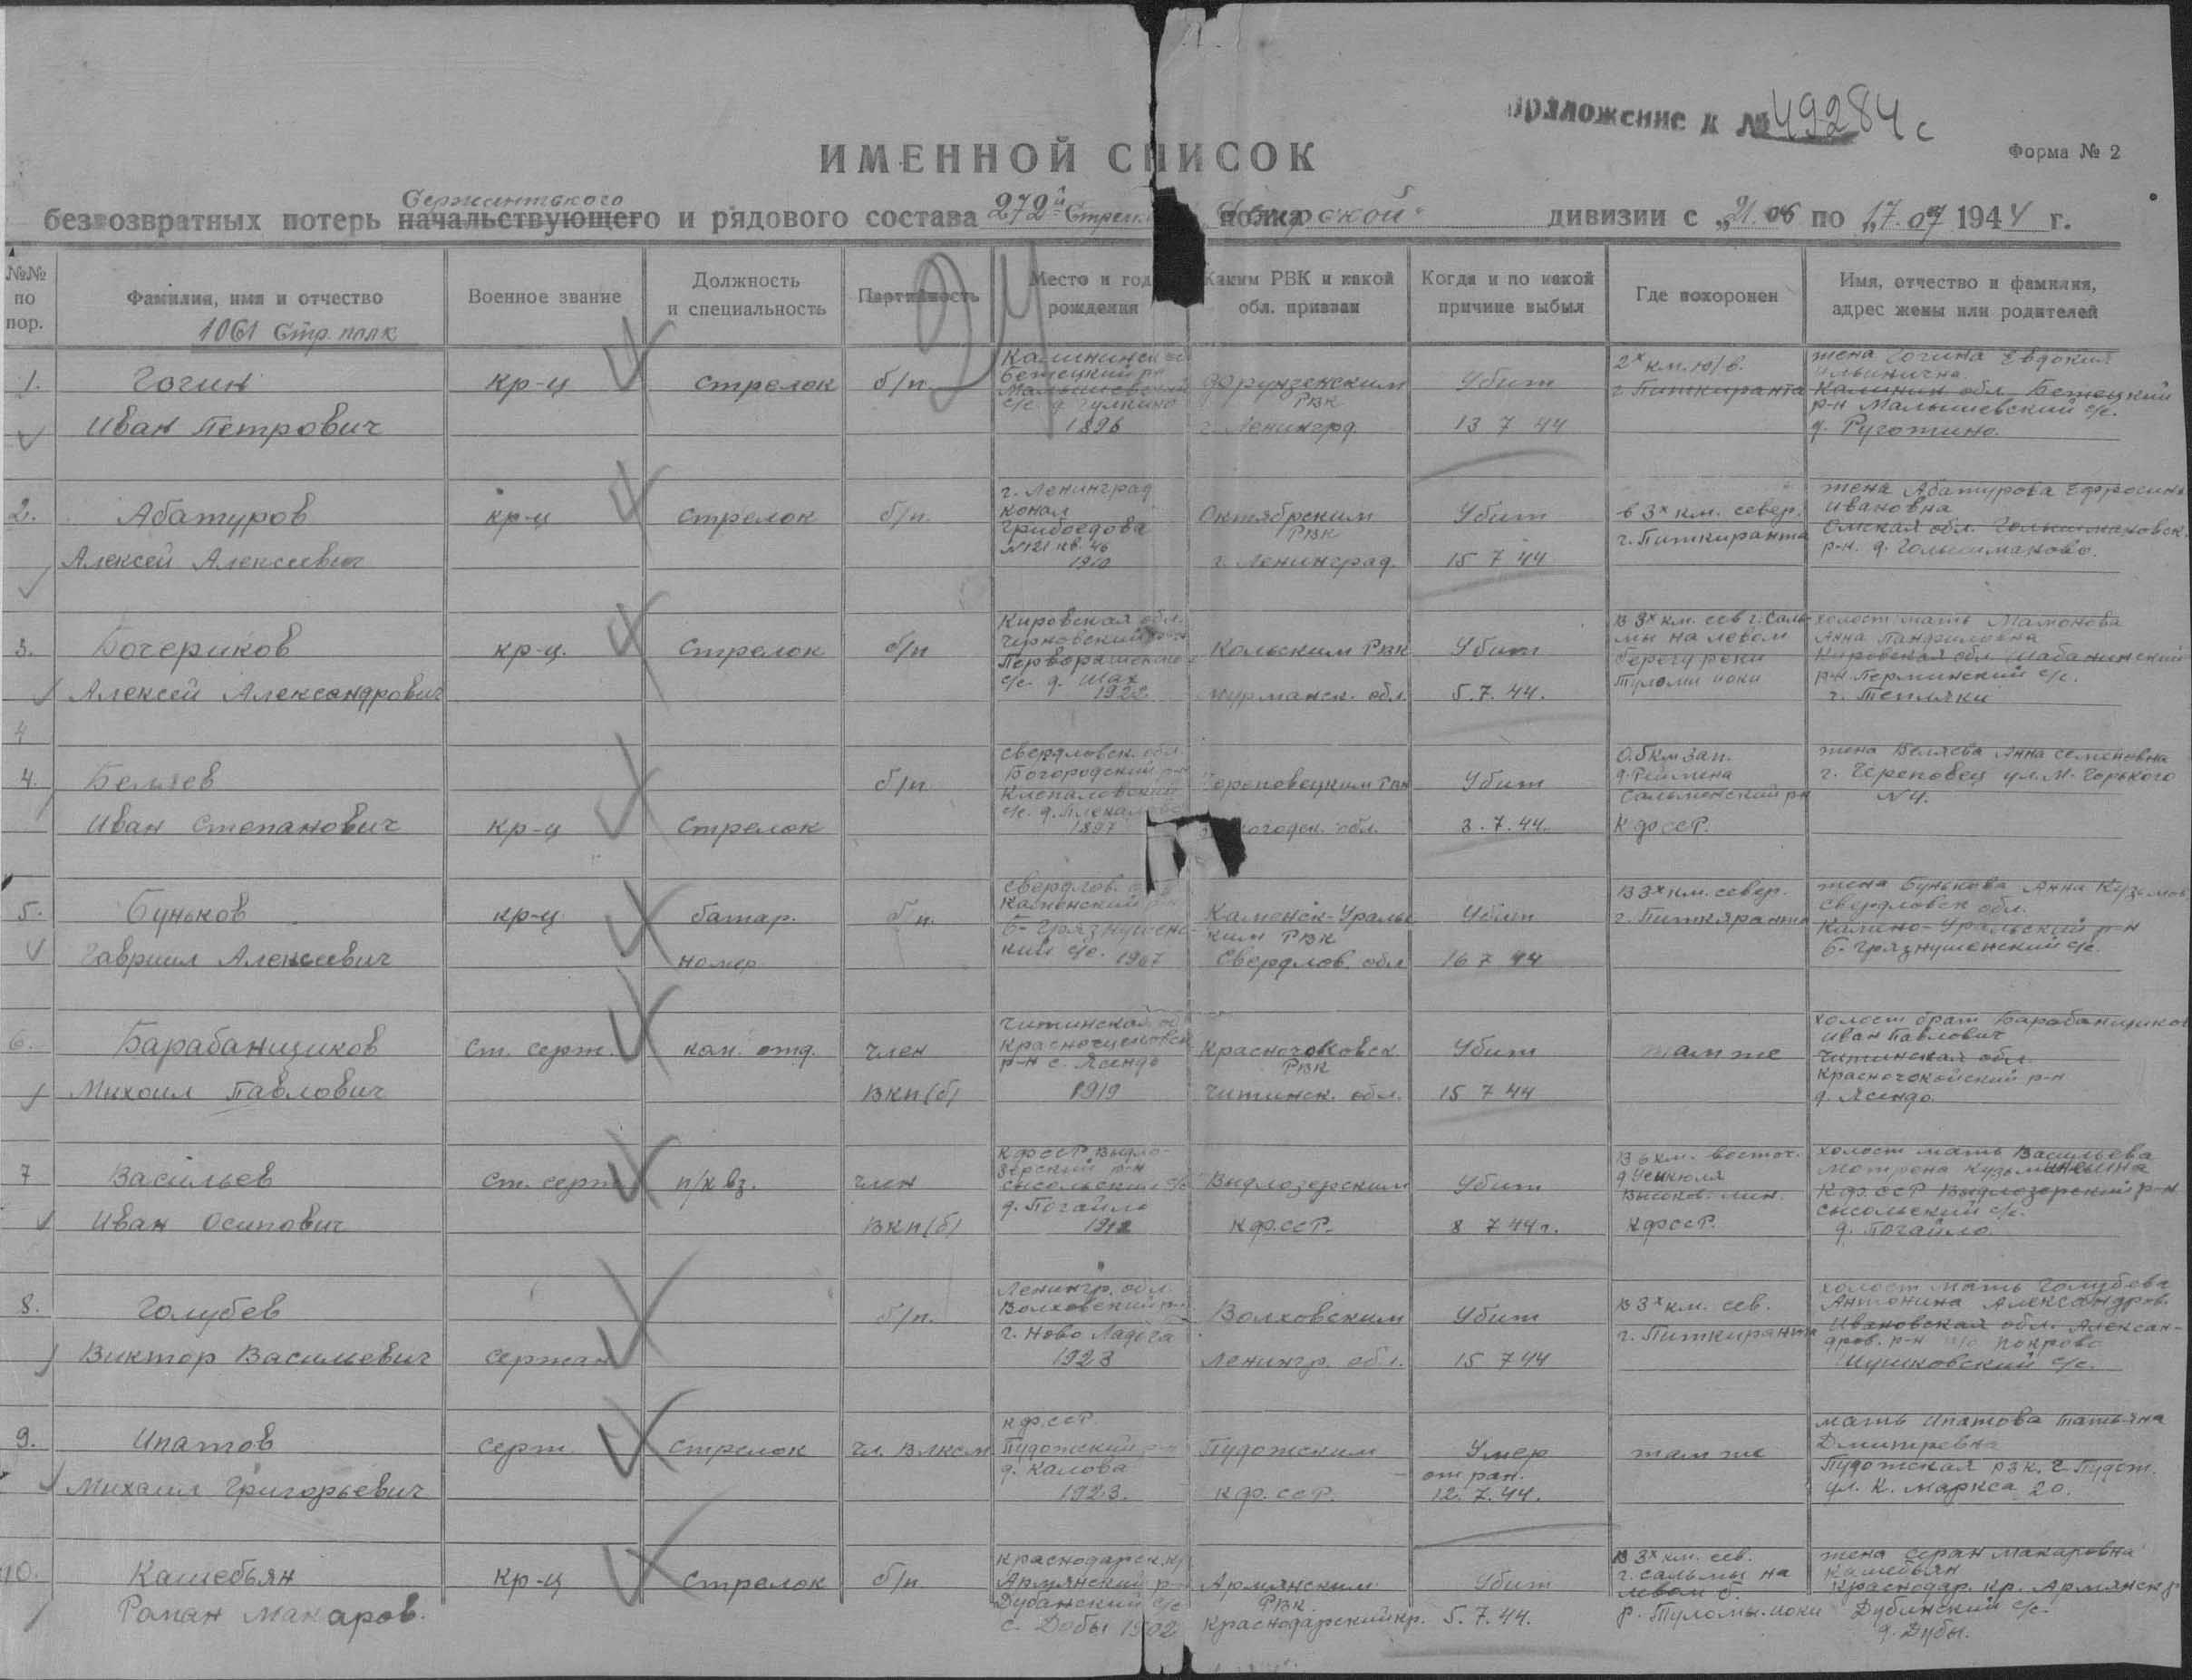 Приложение к № 49284с
Форма № 2
ИМЕННОЙ СПИСОК
Сержантского
безвозвратных потерь начальствующего и рядового состава 272й Стрелк. полка дивизии с „21.06 по 17.07 1944 г.
№№ по пор.
Фамилия, имя и отчество
1061 Стр. полк
Военное звание
Должность и специальность
Партийность
Место и год рождения
Каким РВК и какой обл. призван
Когда и по какой причине выбыл
Где похоронен
Имя, отчество и фамилия, адрес жены или родителей
1.
Гогин
Иван Петрович
кр-ц
стрелок
б/п
Бетецкий р-н
1896
Фрунзенским
РВК
г. Ленингр.
Убит
13 7 44
2х км. ю/в.
г. Питкиранта
жена Гогина Евдокия
Ильинична
Калинин обл. Бетецкий
р-н Малышевский с/с.
д. Руготино.
2.
Абатуров
Алексей Алексеевич
кр-ц
стрелок
б/п.
г. Ленинград
конал
Грибоедова
№121 кв. 46
1910
Октябрским
РВК
г. Ленинград.
Убит
15 7 44
в 3х км. север.
г. Питкиранта
жена Абатурова
Ивановна
Омская обл.
р-н. д. Голышманово.
3.
Бочериков
Алексей Александрович
кр-ц.
Стрелок
б/п
Кировская обл.
с/с. д. Шах
1922
Кольским РВК
мурманск. обл.
Убит
5.7.44.
в 3х км. сев г. Саль
мы на левом
берегу реки
холост мать Мамонова
Анна Панфиловна
Кировская обл. Шабалинский
р-н с/с.
4
4.
Беляев
Иван Степанович
кр-ц
Стрелок
б/п
свердловск. обл.
1897
Череповецким РВК
обл.
Убит
3.7.44.
0.5 км зап.
КФССР.
жена Беляева Анна Семеновна
г. Череповец ул. М. Горького
№4.
5.
Буньков
Гавриил Алексеевич
кр-ц
батар.
номер
б/п.
кий с/с. 1907
Каменск-Уральс
ким РВК
Свердлов. обл
Убит
16 7 44
в 3х км. север.
г. Питкяранта
жена Бунькова Анна
Свердловск обл.
р-н
Б-Грязнушенский с/с.
6.
Барабанщиков
Михаил Павлович
Ст. серж.
ком. отд.
член
ВКП(б)
Читинская
р-н с. Ясендо
1919
Красночоковск.
РВК
Читинск. обл.
Убит
15 7 44
там же
холост брат Барабанщиков
Иван Павлович
Читинская обл.
Красночокойский р-н
д. Ясендо.
7
Васильев
Иван Осипович
Ст. серж
п/х вз.
член
ВКП(б)
КФССР Видло-
зерский р-н
д. Погайло
1912
Видлозерским
КФССР.
Убит
8 7 44г.
в 6 км. восточ.
КФССР.
холост мать Васильева
Матрена Кузьминична
КФССР Видлозерский р-н
с/с.
д. Погайло.
8.
Голубев
Виктор Васильевич
сержан
б/п.
Ленингр. обл.
Волховский
г. Ново Ладога
1923
Волховским
Ленингр. обл.
Убит
15 7 44
в 3х км. сев.
г. Питкиранта
холост мать Голубева
Антонина Александров.
Ивановская обл. Алексан-
дров. р-н Покрово
с/с.
9.
Ипатов
Михаил Григорьевич
серж.
стрелок
чл. ВЛКСМ
КФССР.
Пудожский
д. Калова
1923.
Пудожским
КФ.ССР.
Умер
от ран.
12.7.44.
там же
мать Ипатова Татьяна
Дмитревна
Пудожская РВК. г. Пудож.
ул. К. Маркса 20.
10.
Кашебьян
Роман Макаров.
кр-ц
стрелок
б/п
Краснодарск. кр.
Армянский р-н
Дубанский с/с
1902
Армянским
РВК.
Краснодарский кр.
Убит
5.7.44.
в 3х км. сев.
г. Сальмы на
левом б.
р. Туломы-иоки
жена Макаровна
Кашебьян
Краснодар. кр. Армянск р
Дубинский с/с.
д. Дубы.